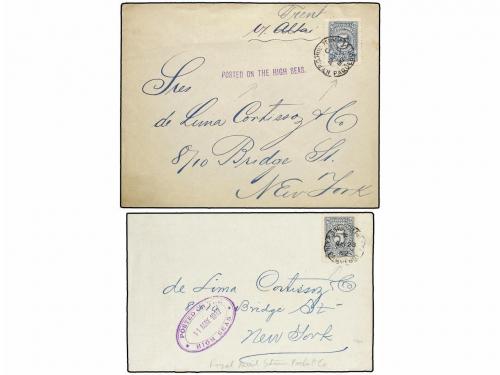 Trent
Altai
POSTED ON THE HIGH SEAS.
5
Sres
de Lima Cortissoz & Co
8/10 Bridge St.
New York
5
de Lima Cortissoz & Co
Bridge St
New York
POSTED ON THE
HIGH SEAS
Royal Mail Steam Packet Co